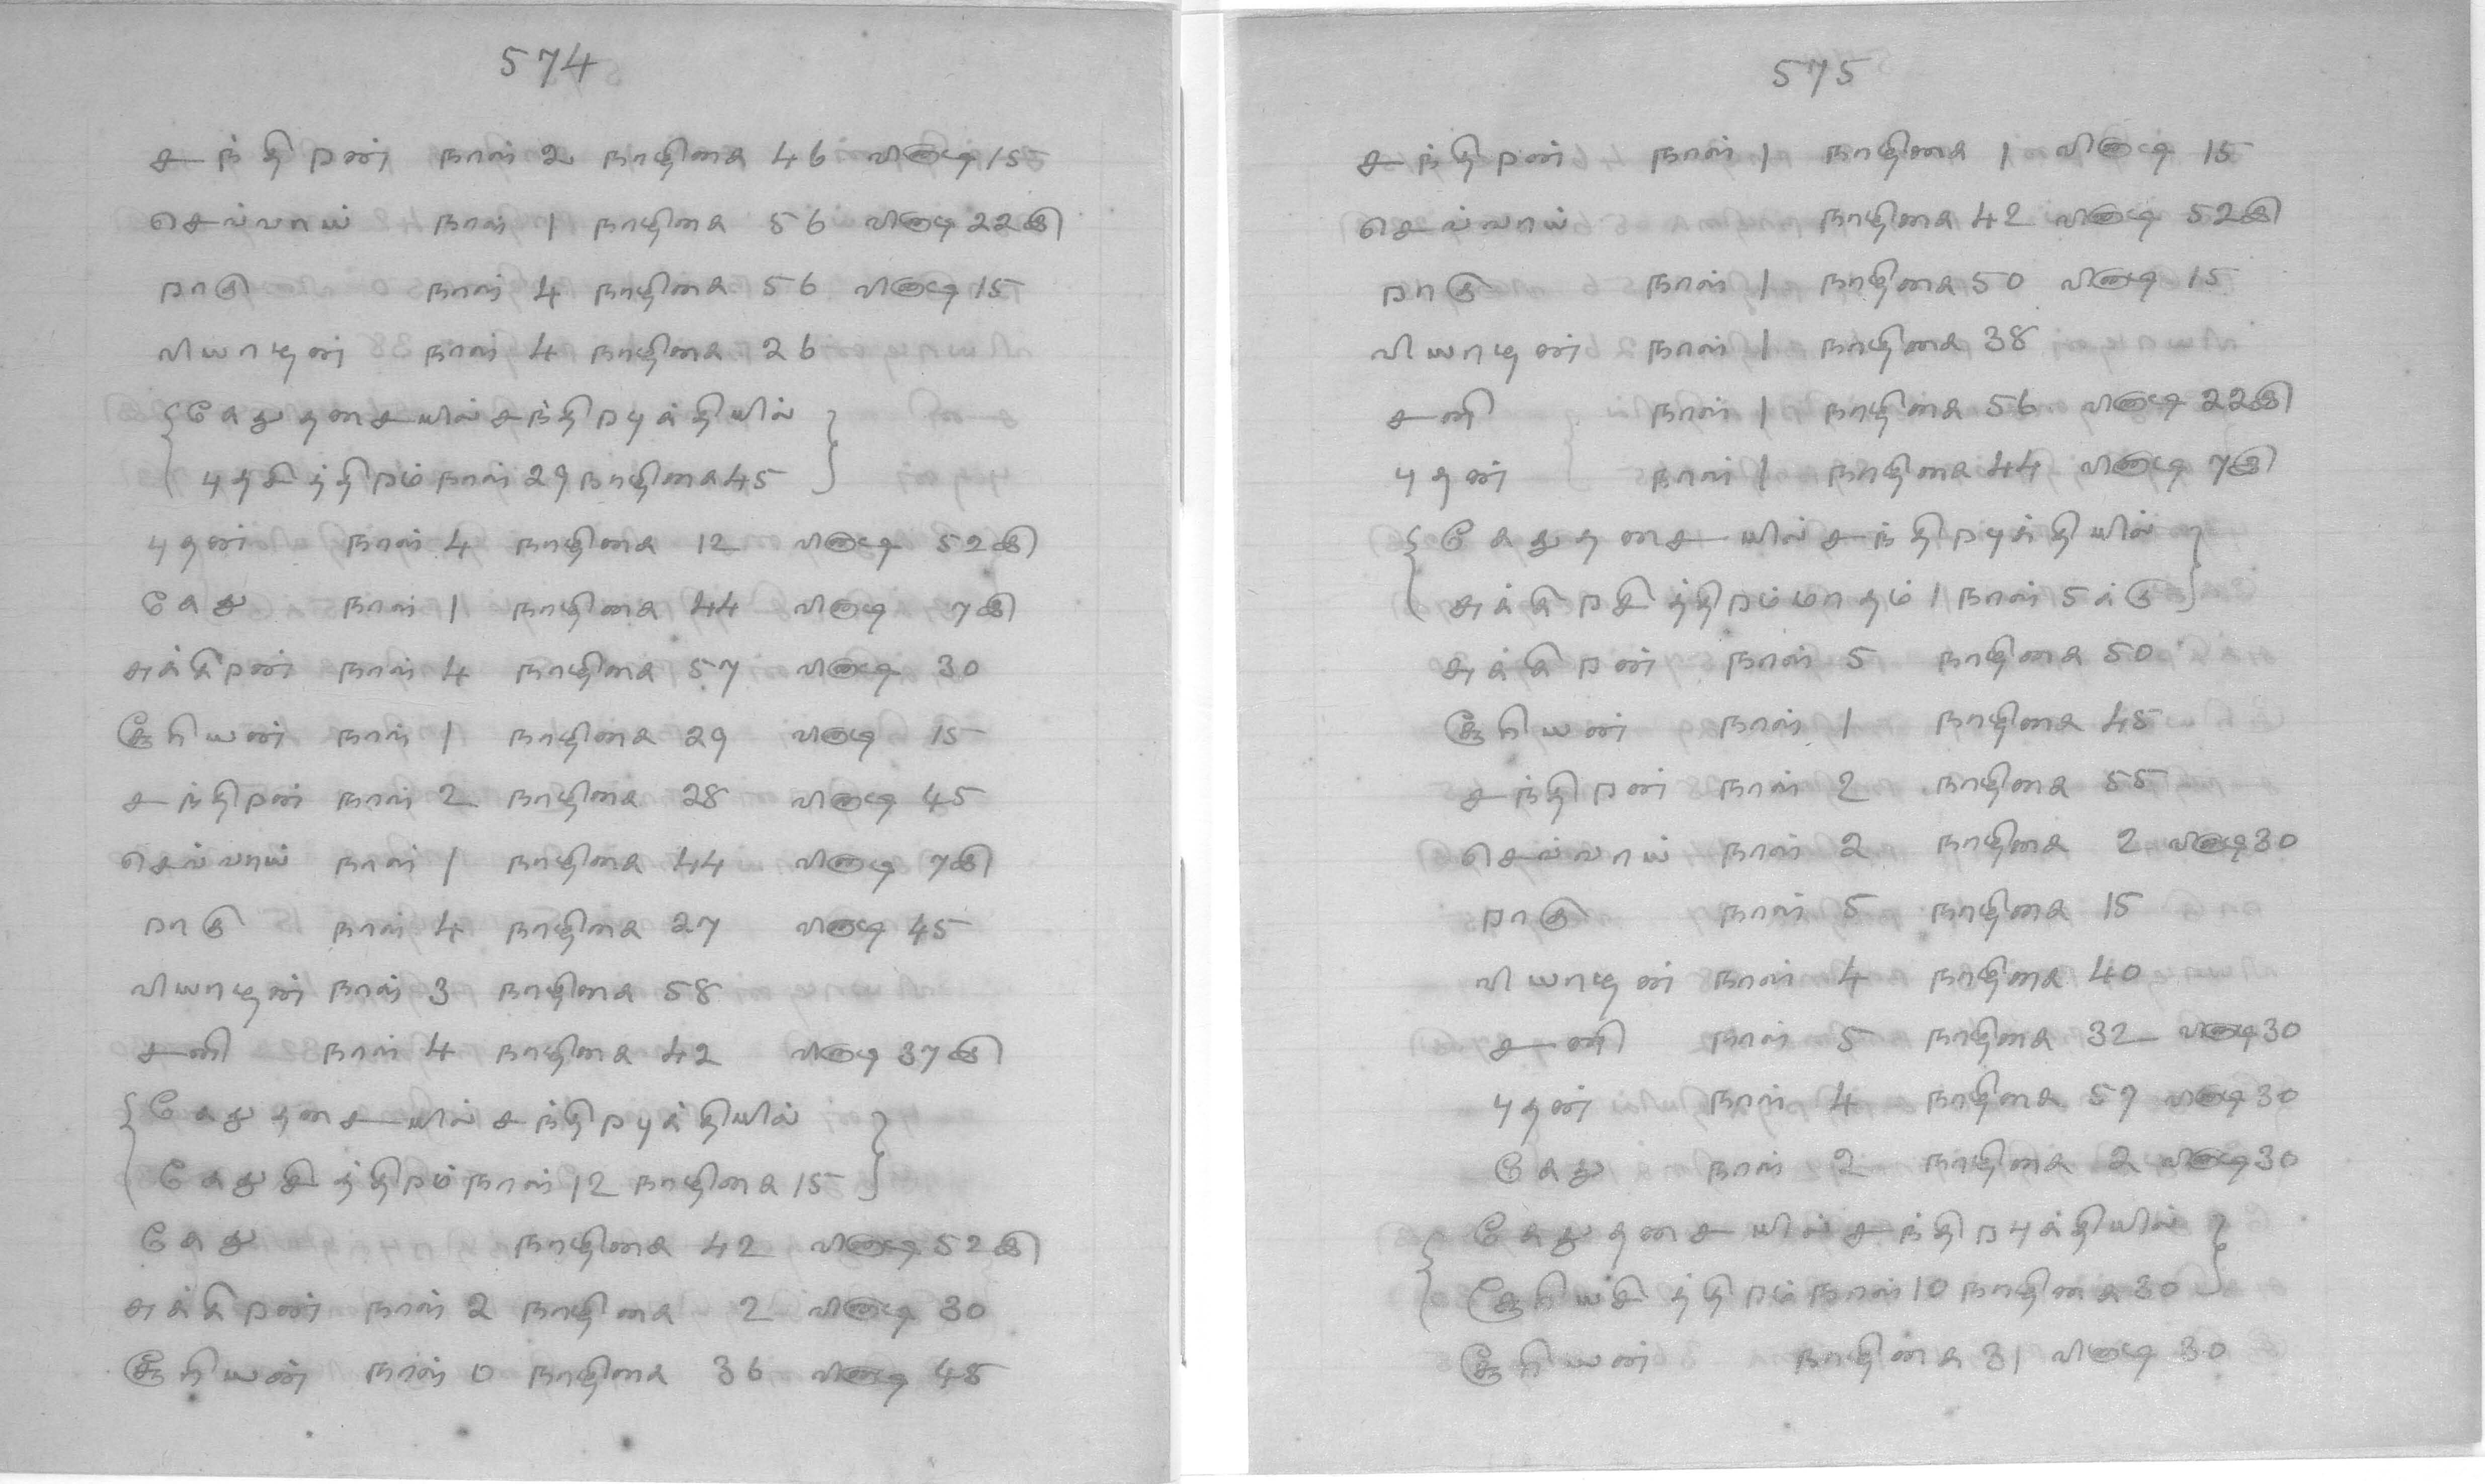 574
சந்திரன் நாள் 2 நாழிகை 46 வினாடி 15
செவ்வாய் நாள் 1 நாழிகை 56 வினாடி 22இ
ராகு நாள் 4 நாழிகை 56 வினாடி 15
வியாழன் நாள் 4 நாழிகை 26
{கேது தசையில் சந்திரபுக்தியில்
புதசித்திரம் நாள் 29 நாழிகை 45}
புதன் நாள் 4 நாழிகை 12 வினாடி 52இ
கேது நாள் 1 நாழிகை 44 வினாடி 7இ
சுக்கிரன் நாள் 4 நாழிகை 57 வினாடி 30
சூரியன் நாள் 1 நாழிகை 29 வினாடி 15
சந்திரன் நாள் 2 நாழிகை 28 வினாடி 45
செவ்வாய் நாள் 1 நாழிகை 44 வினாடி 7இ
ராகு நாள் 4 நாழிகை 27 வினாடி 45
வியாழன் நாள் 3 நாழிகை 58
சனி நாள் 4 நாழிகை 42 வினாடி 37இ
{கேது தசையில் சந்திரபுக்தியில்
கேதுசித்திரம் நாள் 12 நாழிகை 15}
கேது நாழிகை 42 வினாடி 52இ
சுக்கிரன் நாள் 2 நாழிகை 2 வினாடி 30
சூரியன் நாள் 0 நாழிகை 36 வினாடி 45
575
சந்திரன் நாள் 1 நாழிகை 1 வினாடி 15
செவ்வாய் நாழிகை 42 வினாடி 52இ
ராகு நாள் 1 நாழிகை 50 வினாடி 15
வியாழன் நாள் 1 நாழிகை 38
சனி நாள் 1 நாழிகை 56 வினாடி 22இ
புதன் நாள் 1 நாழிகை 44 வினாடி 7இ
{கேது தசையில் சந்திரபுக்தியில்
சுக்கிரசித்திரம் மாதம் 1 நாள் 5க்கு}
சுக்கிரன் நாள் 5 நாழிகை 50
சூரியன் நாள் 1 நாழிகை 45
சந்திரன் நாள் 2 நாழிகை 55
செவ்வாய் நாள் 2 நாழிகை 2 வினாடி 30
ராகு நாள் 5 நாழிகை 15
வியாழன் நாள் 4 நாழிகை 40
சனி நாள் 5 நாழிகை 32 வினாடி 30
புதன் நாள் 4 நாழிகை 57 வினாடி 30
கேது நாள் 2 நாழிகை 2 வினாடி 30
{கேது தசையில் சந்திரபுக்தியில்
சூரியசித்திரம் நாள் 10 நாழிகை 30}
சூரியன் நாழிகை 31 வினாடி 30